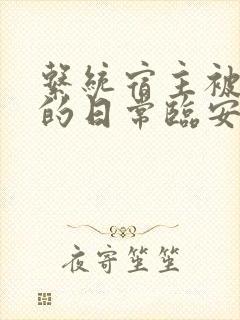 繫統宿主被
的日常臨安
夜寄笙笙